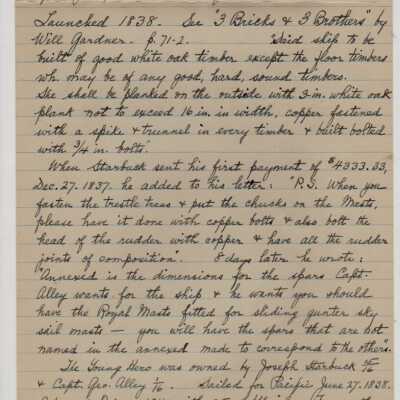 Launched 1838. See "3 Bricks & 3 Brothers" by
Will Gardner. p. 71-2. "Said ship to be
built of good white oak timber except the floor timbers
wh. may be of any good, hard, sound timbers.
She shall be planked on the outside with 3-in. white oak
plank not to exceed 16 in. in width, copper fastened
with a spike & trunnel in every timber & built bolted
with 3/4 in. bolts."
When Starbuck sent his first payment of $4333.33,
Dec. 27. 1837. he added to his letter: "P.S. When you
fasten the trestle trees & put the chucks on the Masts,
please have it done with copper bolts & also bolt the
head of the rudder with copper & have all the rudder
joints of composition". 8 days later he wrote:
"Annexed is the dimensions for the spars Capt.
Alley wants for the ship & he wants you should
have the Royal Masts fitted for sliding quarter sky
sail masts — you will have the spars that are not
named in the annexed made to correspond to the others".
The Young Hero was owned by Joseph Starbuck
& Capt. Geo. Alley 1/16. Sailed for Pacific June 27. 1838.